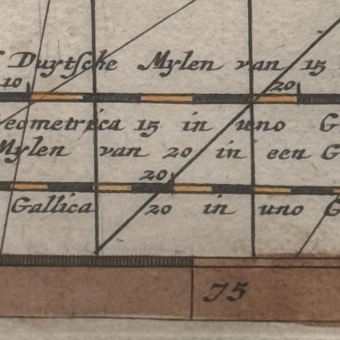 Duytsche Mylen van 15
10 20
eometrica 15 in uno G
Mylen van 20 in een G
20
Gallica 20 in uno G
75